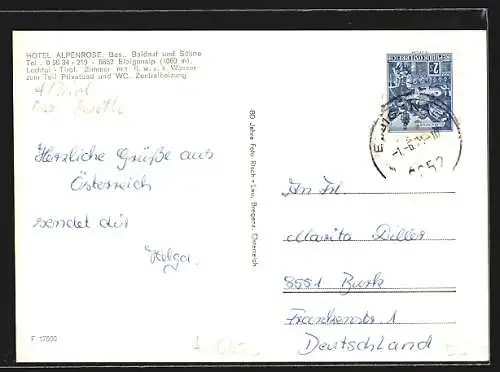 HOTEL ALPENROSE, Bes. Baldauf und Söhne
Tel. 0 56 34 - 219 - 6652 Elbigenalp (1060 m),
Lechtal - Tirol. Zimmer mit fl. w. u. k. Wasser
zum Teil Privatbad und WC. Zentralheizung
Herzliche Grüße aus
Österreich
sendet dir
Helga.
80 Jahre Foto Risch-Lau, Bregenz, Österreich
An Frl.
Marita Diller
8551 Burk
Frankenstr. 1
Deutschland
6652
F 17600